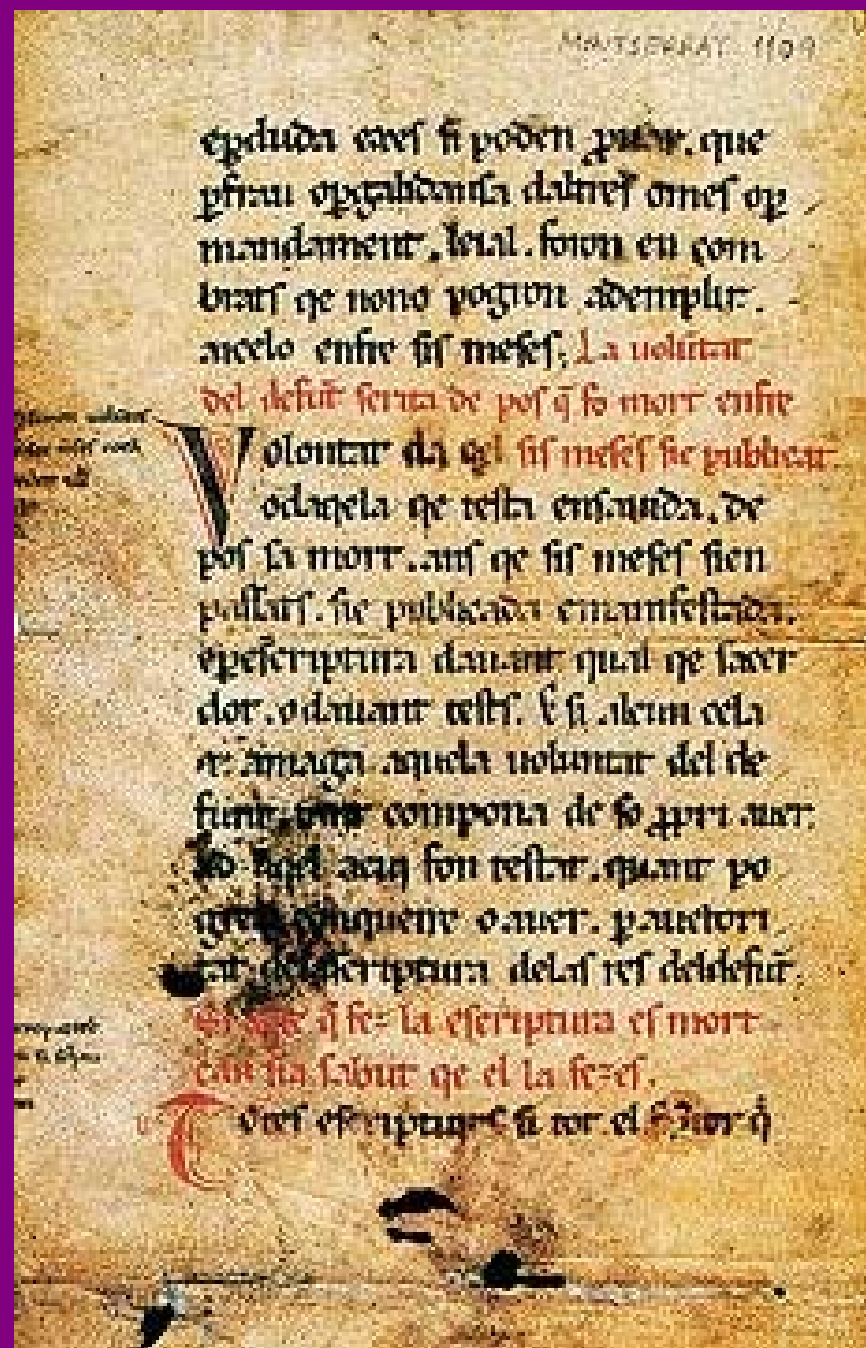 MONTSERRAT 1109
si poden que
pfrau daltres omes
mandament. leial. foron en com
brats qe nono pogron ademplir.
aicelo enfre sis meses; La uolūtat
del defūt scrita de pos q̄ fo mort enfre
Volontat da qel sis meses sie publicat.
odaqela qe testa ensauida. de
pos sa mort. anſ qe sis meses sien
passats. sie publicada emanifestada.
escriptura dauant qual qe sacer
dot. odauant tests. E si alcun cela
amaga aquela uoluntat del de
funt compona de so ppri auer.
aqel aciq fon testat. quant po
conquerre o auer. p auctori
tat escriptura delas res deldefūt
q̄ fez la escriptura es mort
can sia sabut qe el la fezes.
Totes escriptures si tot el